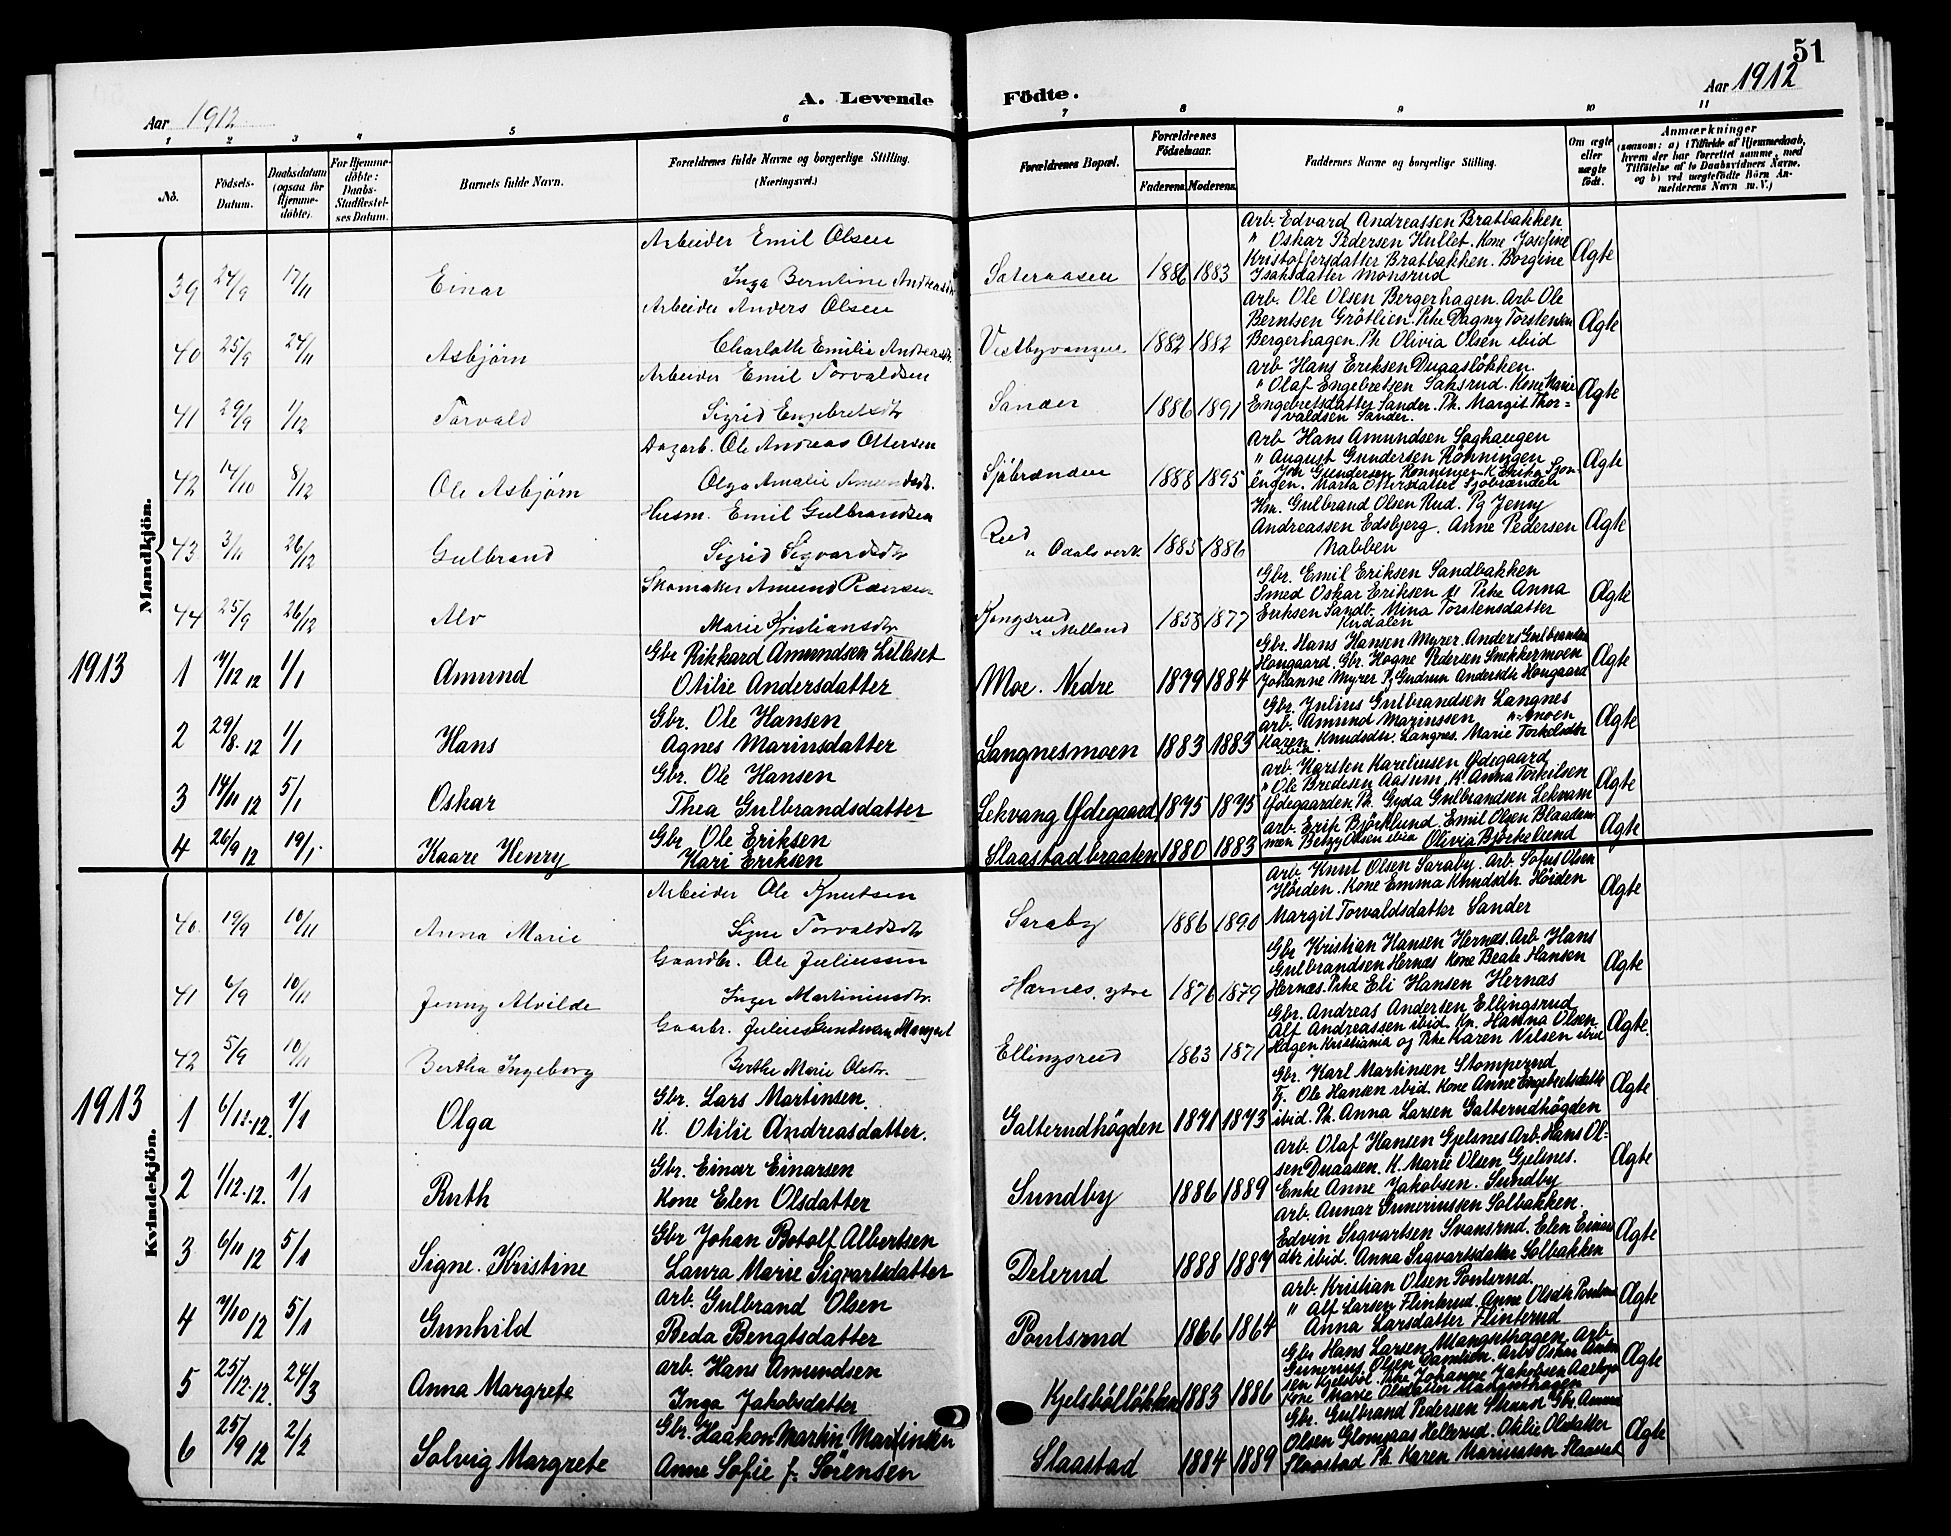 51
Aar 1912
A. Levende Födte.
Aar 1912
1 2 3 4 5 6 7 8 9 10 11
No.
Födsels-Datum.
Daabsdatum (ogsaa for Hjemme-döbte).
For Hjemme-döbte: Daabs-Stadfæstel-ses Datum.
Barnets fulde Navn.
Forældrenes fulde Navne og borgerlige Stilling. (Næringsvei.)
Forældrenes Bopæl.
Forældrenes Födselsaar.
Faderens. Moderens.
Faddernes Navne og borgerlige Stilling.
Om ægte eller uægte födt.
Anmærkninger
(saasom: a) i Tilfælde af Hjemmedaab,
hvem der har forrettet samme, med
Tilföielse af to Daabsvidners Navne,
og b) ved uægtefödte Börn An-
melderens Navn m. V.)
Mandkjön.
39 24/9 17/11 Einar
Arbeider Emil Olsen
Inga Berntine Andreasdtr
Sateraasen 1886 1883
Arb. Edvard Andreassen Bratbakken
" Oskar Pedersen Hullet. Kone Josefine
Kristoffersdatter Bratbakken. Borgine
Isaksdatter Monsrud
Ægte
40 25/9 24/11 Asbjørn
Arbeider Anders Olsen
Charlotte Emilie Andreasdtr.
Vestbyvangen 1882 1882
Arb. Ole Olsen Bergerhagen. Arb Ole
Berntsen Grötlien. Pike Dagny Torstensen
Bergerhagen. Pk Olivia Olsen ibid
Ægte
41 29/9 1/12 Torvald
Arbeider Emil Torvaldsen
Sigrid Engebretsdtr
Sander 1886 1891
Arb Hans Eriksen Duaasløkken.
" Olaf Engebretsen Saksrud. Kone Marie
Engebretsdatter Sander. Pk. Margit Thor=
valdsen Sander.
Ægte
42 14/10 8/12 Ole Asbjørn
Dagarb. Ole Andreas Ottersen
Olga Amalie
Sjöbrænden 1888 1895
Arb Hans Amundsen Saghaugen
" August Gundersen Rönningen
" Joh Gundersen Rönningen K Erika
Marta Ottersdatter Sjöbrænden
Ægte
43 3/11 26/12 Gulbrand
Husm. Emil Gulbrandsen
Sigrid Sigvardsdtr
Rud u Odalsverk. 1885 1886
Hm. Gulbrand Olsen Rud. Pg Jenny
Andreassen Edsbjerg. Anne Pedersen
Nabben
Ægte
44 25/9 26/12 Alv
Skomaker Amund
Marie Kristiansdtr
Kongsrud u Melland 1858 1877
Gbr. Emil Eriksen Sandbakken
Smed Oskar Eriksen Pike Anna
Eriksen Sandb. Mina Torstensdatter
Ægte
1913
1 7/12 12 1/1 Amund
Gbr Rikkard Amundsen Lilleset
Otilie Andersdatter
Moe. Nedre 1879 1884
Gbr. Hans Hansen Myrer. Anders Gulbrandsen
Hongaard. Gbr. Hogne Pedersen Snekkermoen
Johanne Myrer Pg Gudrun Andersdtr Hongaard
Ægte
2 29/8. 12 1/1 Hans
Gbr. Ole Hansen
Agnes Marinsdatter
Langnesmoen 1883 1883
Gbr. Julius Gulbrandsen Langnes
arb. Amund Marinssen " moen
Karen Knudsdtr. Langnes. Marie Torkelsdtr
ibid.
Ægte
3 14/11 12 5/1 Oskar
Gbr. Ole Hansen
Thea Gulbrandsdatter
Lekvang Ødegaard 1875 1875
arb Karsten Kareliusen Ødegaard
" Ole Bredesen Aasum, K. Anna Torkilsen
Ødegaarden Pk. Gyda Gulbrandsen Lekvam
Ægte
4 26/9 12 19/1. Kaare Henry
Gbr Ole Eriksen
Kari Eriksen
Slaastadbraaten 1880 1883
arb. Erik Björklund. Emil Olsen
Betzy Olsen ibid Olivia Bjoekelund
Ægte
Kvindekjön.
40. 19/9 10/11 Anna Marie
Arbeider Ole Knutsen
Signe Torvaldsdtr
Saraby 1886 1890
arb. Knut Olsen Saraby. Arb. Sofus Olsen
Höiden. Kone Emma Knudsdtr. Höiden
Margit Torvaldsdatter Sander
Ægte
41 6/9 10/11 Jenny Alvilde
Gaardbr. Ole Juliussen
Inger Martiniusdtr.
Hærnes, ytre 1876 1879
Gbr Kristian Hansen Hernæs. Arb Hans
Gulbrandsen Hernæs Kone Beate Hansen
Hernæs. Pike Eli Hansen Hernæs
Ægte
42 5/9 10/11 Bertha Ingeborg
Gaarbr. Julius Gundersen Mangset
Berthe Marie Olsdtr.
Ellingsrud 1863 1871
Gbr. Andreas Andersen Ellingsrud
Alf Andreassen ibid. Kp. Hanna Olsen
Hagen Kristiania og Pike Karen Nilsen ibid
Ægte.
1913
1 6/12.12. 1/1 Olga
Gbr. Lars Martinsen.
K. Otilie Andreasdatter.
Galterudhögden 1871 1873
Gbr. Karl Martinsen Stomperud
Fj. Ole Hansen ibid. Kone Anne Engebretsdatter
ibid. Pk. Anna Larsen Galterudhögden
Ægte
2 1/12.12. 1/1 Ruth
Gbr. Einar Einarsen
Kone Elen Olsdatter
Sundby 1886 1889
arb. Olaf Hansen Gjelsnes Arb. Hans Ol=
sen Duaasen. K. Marie Olsen Gjelsnes.
Enke Anne Jakobsen. Sundby
Ægte
3 6/11 12 5/1 Signe. Kristine
Gbr Johan Botolf Albertsen
Laura Marie Sigvartsdatter
Delerud 1888 1887
arb. Annar Gunerinssen Solbakken.
Edvin Sigvartsen Svansrud. Elen Einars
dtr ibid. Anna Sigvartsdatter Solbakken
Ægte
4 7/10 12 5/1 Gunhild
Arb. Gulbrand Olsen
Beda Bengtsdatter
Poulsrud 1866 1864
arb. Kristian Olsen Poulsrud.
" Alf Larsen Flinterud Anne Olsdtr Poulsrud
Anna Larsdatter Flinterud
Ægte
5 25/12.12. 24/3 Anna Margrete
arb. Hans Amundsen
Inga Jakobsdatter
Kjelsbölløkken 1883 1886
Gbr Hans Larsen Mangsethagen. Arb
Gunerius Olsen Damlien. Arb Oskar
sen Kjelsböl. Pike Johanne Jakobsen
Kone Marie Olsdatter Mangsethagen
Ægte
6 25/9 12 2/2 Solvig Margrete
Gbr. Haakon Martin Martinsen
Anne Sofie f. Sörensen
Slaastad 1884 1889
Gbr. Gulbrand Pedersen Gbr. Amund
Olsen Glomsaas Hellerud. Otilie Olsdatter
Slaastad Pk. Karen Marinssen Slaastad
Ægte